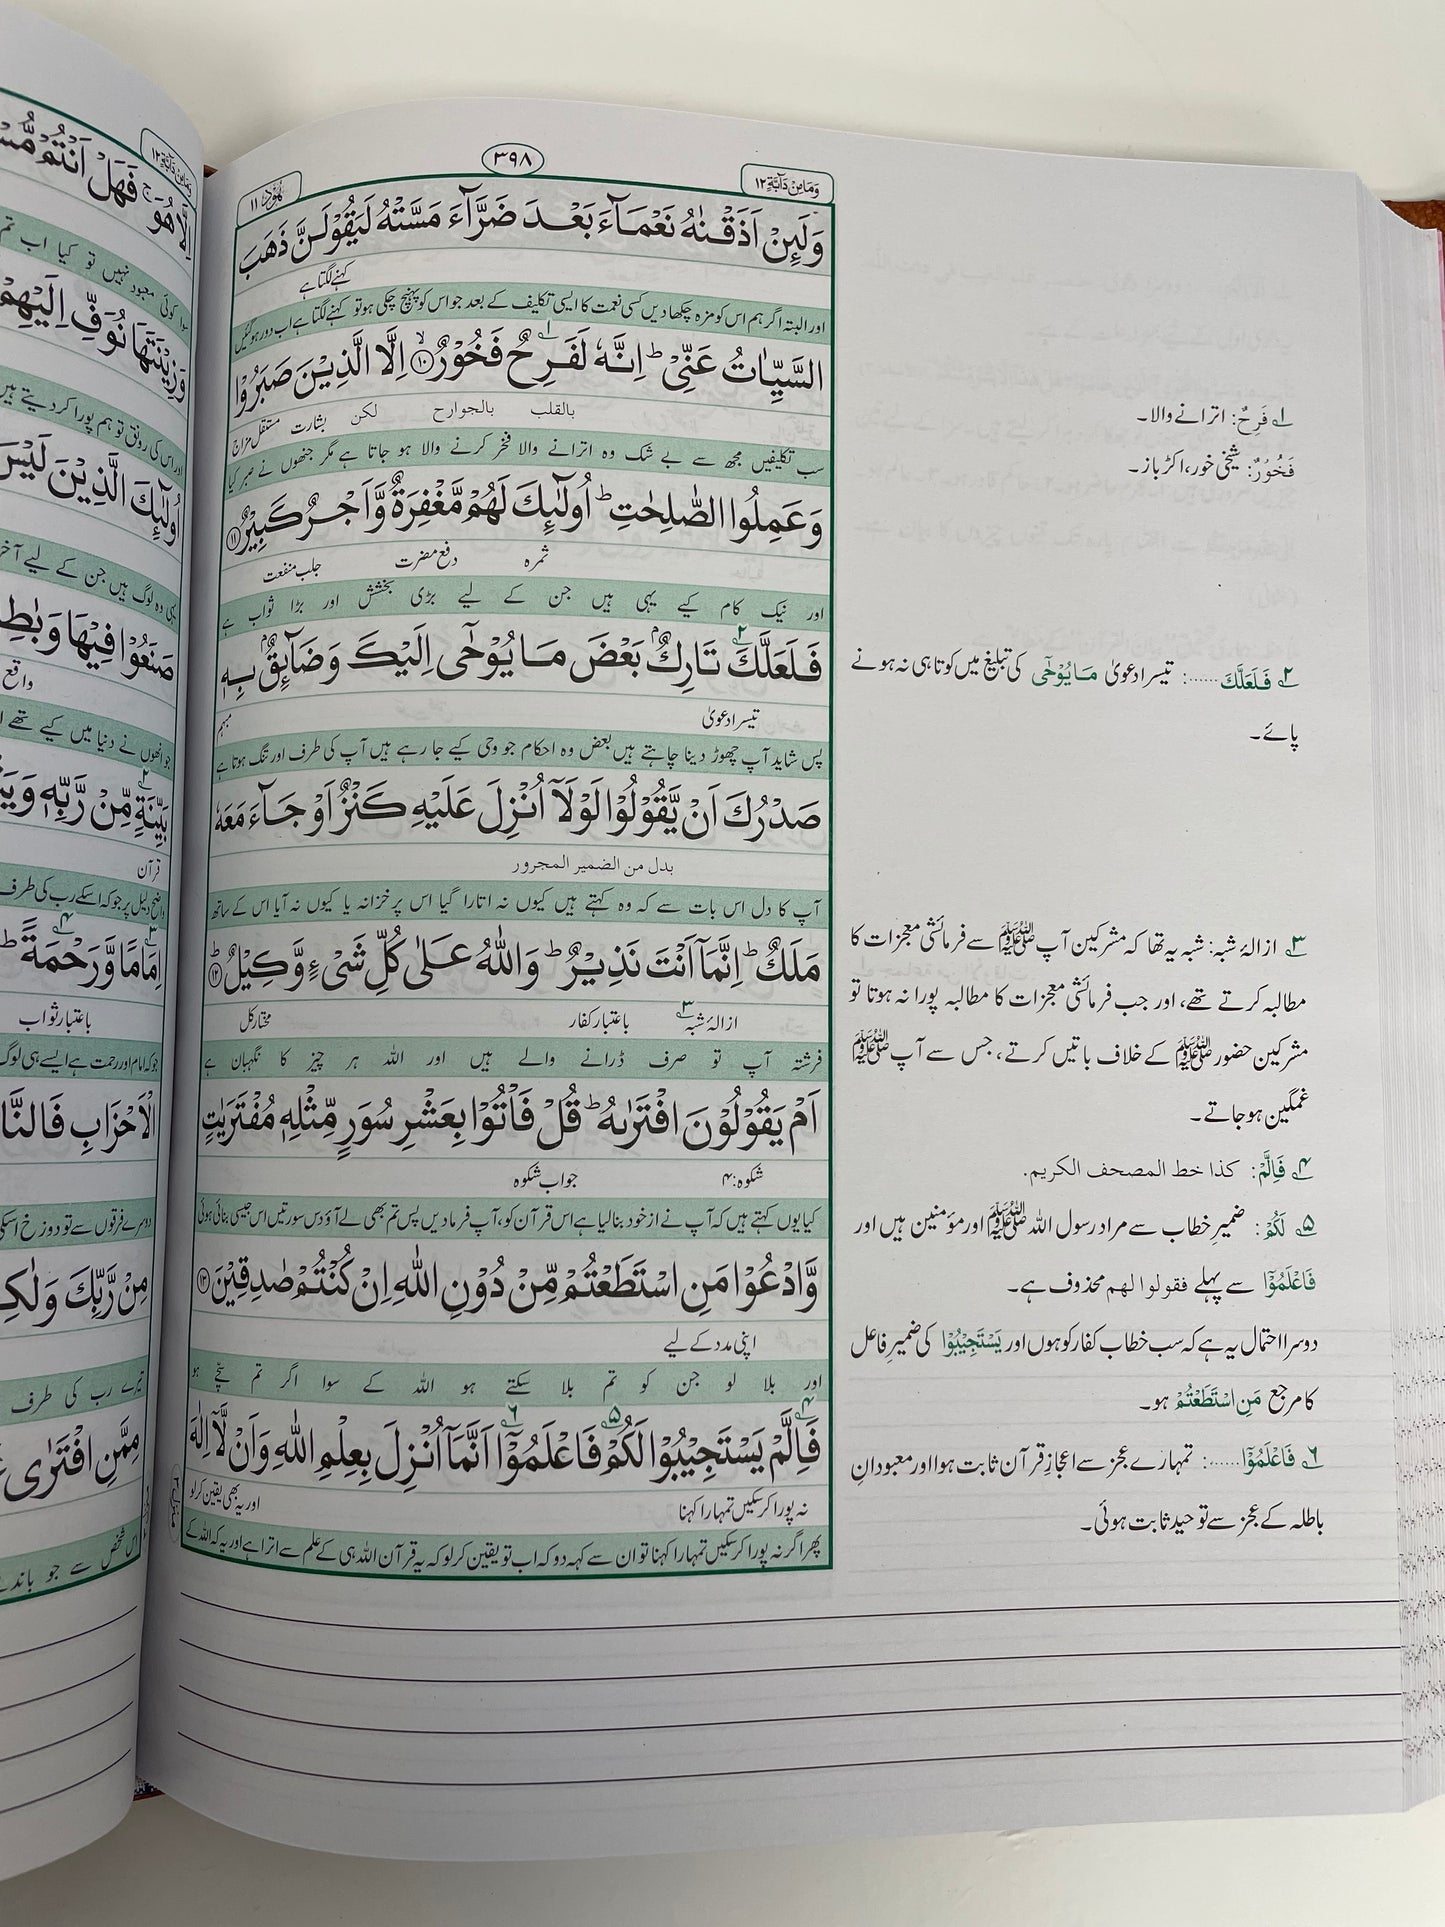 ۳۹۸
وَمَا مِنْ دَآبَّةٍ ۱۲
هُوْد ۱۱
وَلَىِٕنْ اَذَقْنٰهُ نَعْمَآءَ بَعْدَ ضَرَّآءَ مَسَّتْهُ لَیَقُوْلَنَّ ذَهَبَ
کہنے لگتا ہے
اور البتہ اگر ہم اس کو مزہ چکھا دیں کسی نعمت کا ایسی تکلیف کے بعد جو اس کو پہنچ چکی ہو تو کہنے لگتا ہے اب دور ہو گئیں
السَّیِّاٰتُ عَنِّیْ ؕ اِنَّهٗ لَفَرِحٌ ۱ فَخُوْرٌ ۙ۱۰ اِلَّا الَّذِیْنَ صَبَرُوْا
بالقلب بالجوارح لکن بشارت مستقل مزاج
سب تکلیفیں مجھ سے بے شک وہ اترانے والا فخر کرنے والا ہو جاتا ہے مگر جنھوں نے صبر کیا
وَعَمِلُوا الصّٰلِحٰتِ ؕ اُولٰٓىِٕكَ لَهُمْ مَّغْفِرَةٌ وَّاَجْرٌ كَبِیْرٌ ۱۱
ثمرہ دفع مضرت جلب منفعت
اور نیک کام کیے یہی ہیں جن کے لیے بڑی بخشش اور بڑا ثواب ہے
فَلَعَلَّكَ ۲ تَارِكٌۢ بَعْضَ مَا یُوْحٰۤی اِلَیْكَ وَضَآىِٕقٌۢ بِهٖ
تیسرا دعویٰ مبہم
پس شاید آپ چھوڑ دینا چاہتے ہیں بعض وہ احکام جو وحی کیے جا رہے ہیں آپ کی طرف اور تنگ ہوتا ہے
صَدْرُكَ اَنْ یَّقُوْلُوْا لَوْلَاۤ اُنْزِلَ عَلَیْهِ كَنْزٌ اَوْ جَآءَ مَعَهٗ
بدل من الضمیر المجرور
آپ کا دل اس بات سے کہ وہ کہتے ہیں کیوں نہ اتارا گیا اس پر خزانہ یا کیوں نہ آیا اس کے ساتھ
مَلَكٌ ؕ اِنَّمَاۤ اَنْتَ نَذِیْرٌ ؕ وَاللّٰهُ عَلٰی كُلِّ شَیْءٍ وَّكِیْلٌ ؕ۱۲
ازالۂ شبہ ۳ باعتبار کفار مختار کل
فرشتہ آپ تو صرف ڈرانے والے ہیں اور اللہ ہر چیز کا نگہبان ہے
اَمْ یَقُوْلُوْنَ افْتَرٰىهُ ؕ قُلْ فَاْتُوْا بِعَشْرِ سُوَرٍ مِّثْلِهٖ مُفْتَرَیٰتٍ
شکوہ: ۴ جواب شکوہ
کیا یوں کہتے ہیں کہ آپ نے از خود بنا لیا ہے اس قرآن کو، آپ فرما دیں پس تم بھی لے آؤ دس سورتیں اس جیسی بنائی ہوئی
وَّادْعُوْا مَنِ اسْتَطَعْتُمْ مِّنْ دُوْنِ اللّٰهِ اِنْ كُنْتُمْ صٰدِقِیْنَ ۱۳
اپنی مدد کے لیے
اور بلا لو جن کو تم بلا سکتے ہو اللہ کے سوا اگر تم سچے ہو
فَاِلَّمْ ۴ یَسْتَجِیْبُوْا لَكُمْ ۵ فَاعْلَمُوْۤا ۶ اَنَّمَاۤ اُنْزِلَ بِعِلْمِ اللّٰهِ وَاَنْ لَّاۤ اِلٰهَ
نہ پورا کر سکیں تمہارا کہنا اور یہ بھی یقین کر لو
پھر اگر نہ پورا کر سکیں تمہارا کہنا تو ان سے کہہ دو کہ اب تو یقین کر لو کہ یہ قرآن اللہ ہی کے علم سے اترا ہے اور یہ کہ اللہ کے
منزل ۳
۱ فَرِحٌ: اترانے والا۔
فَخُوْرٌ: شیخی خور، اکڑ باز۔
۲ فَلَعَلَّكَ......: تیسرا دعویٰ مَا یُوْحٰۤی کی تبلیغ میں کوتاہی نہ ہونے
پائے۔
۳ ازالۂ شبہ: شبہ یہ تھا کہ مشرکین آپ ﷺ سے فرمائشی معجزات کا
مطالبہ کرتے تھے، اور جب فرمائشی معجزات کا مطالبہ پورا نہ ہوتا تو
مشرکین حضور ﷺ کے خلاف باتیں کرتے، جس سے آپ ﷺ
غمگین ہو جاتے۔
۴ فَاِلَّمْ: كذا خط المصحف الكريم.
۵ لَكُمْ: ضمیرِ خطاب سے مراد رسول اللہ ﷺ اور مؤمنین ہیں اور
فَاعْلَمُوْۤا سے پہلے فقولوا لهم محذوف ہے۔
دوسرا احتمال یہ ہے کہ سب خطاب کفار کو ہوں اور یَسْتَجِیْبُوْا کی ضمیرِ فاعل
کا مرجع مَنِ اسْتَطَعْتُمْ ہو۔
۶ فَاعْلَمُوْۤا......: تمہارے عجز سے اعجازِ قرآن ثابت ہوا اور معبودانِ
باطلہ کے عجز سے توحید ثابت ہوئی۔